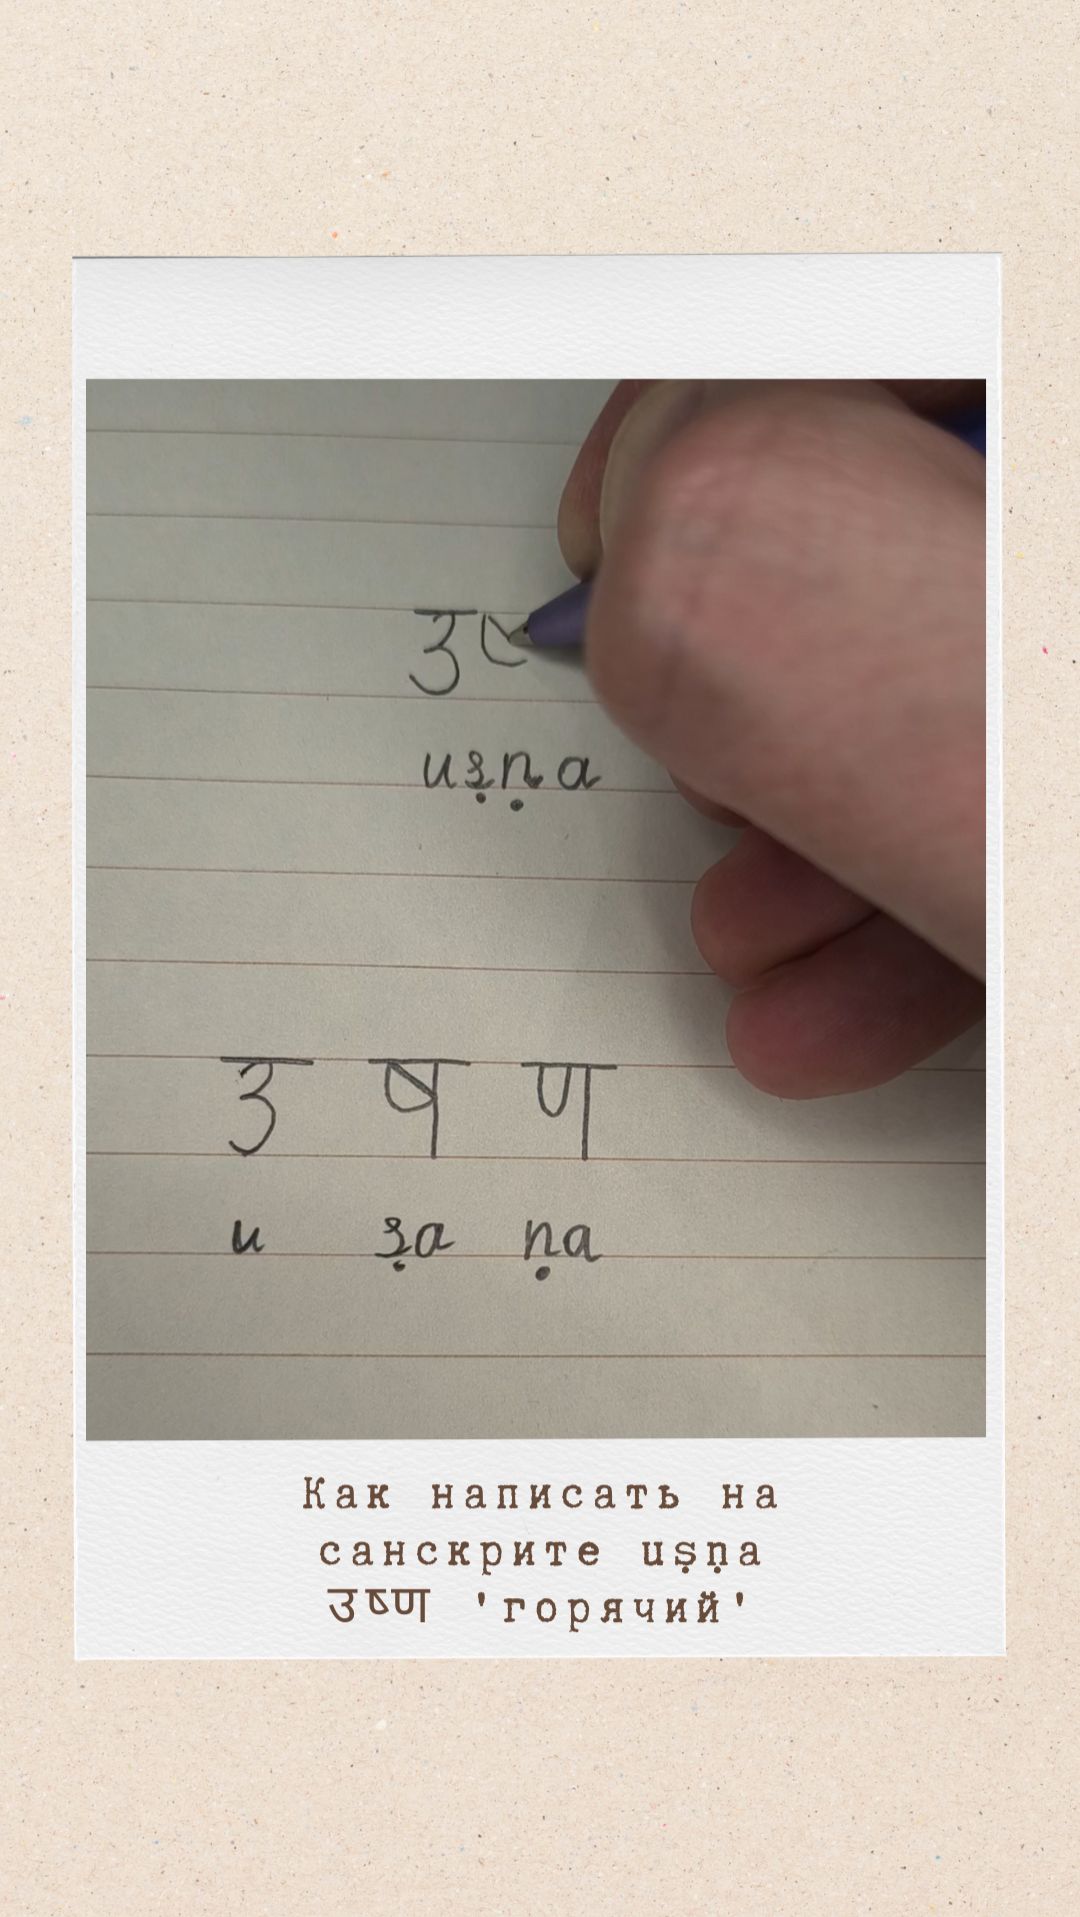 उष
uṣṇa
उ ष ण
u ṣa ṇa
Как написать на
санскрите uṣṇa
उष्ण 'горячий'